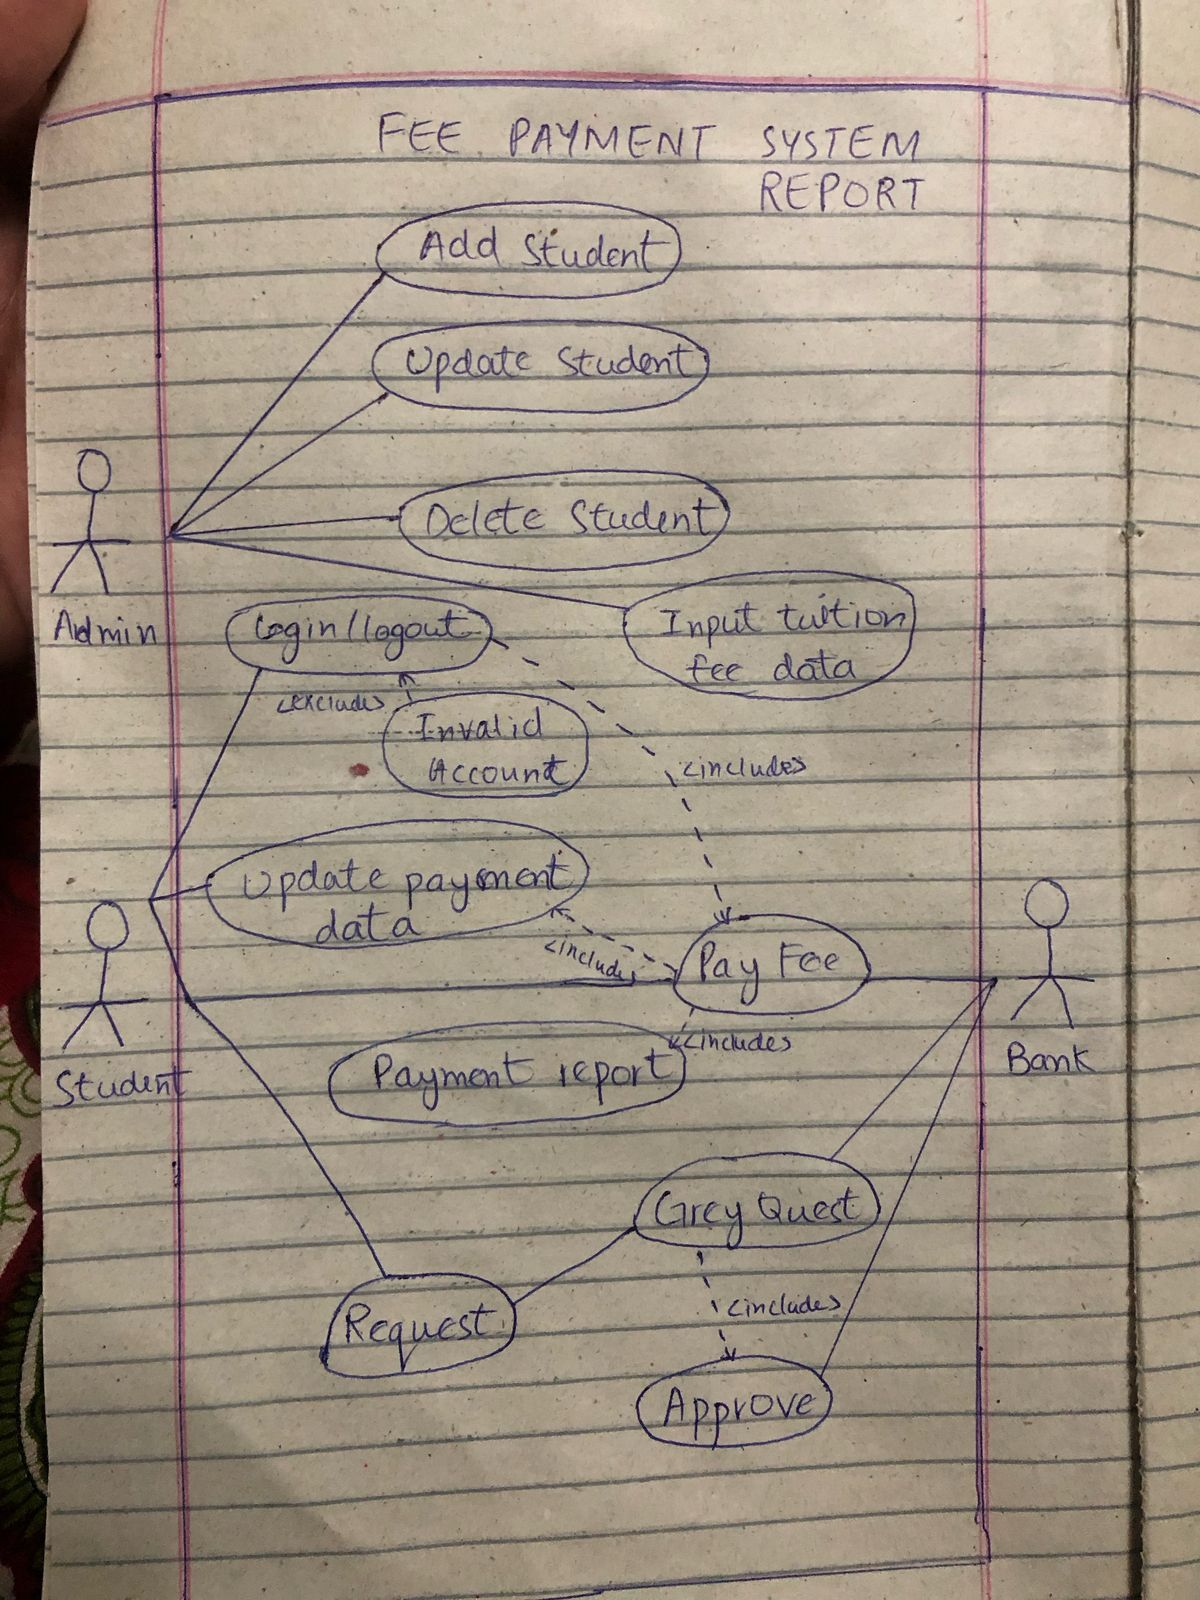 FEE PAYMENT SYSTEM
REPORT
Add Student
Update Student
Delete Student
Admin
Login/logout
Input tuition
fee data
<excludes
Invalid
Account
<includes
Update payment
data
<includes
Pay Fee
Student
Payment report
<includes
Bank
Grey Quest
Request
<includes
Approve